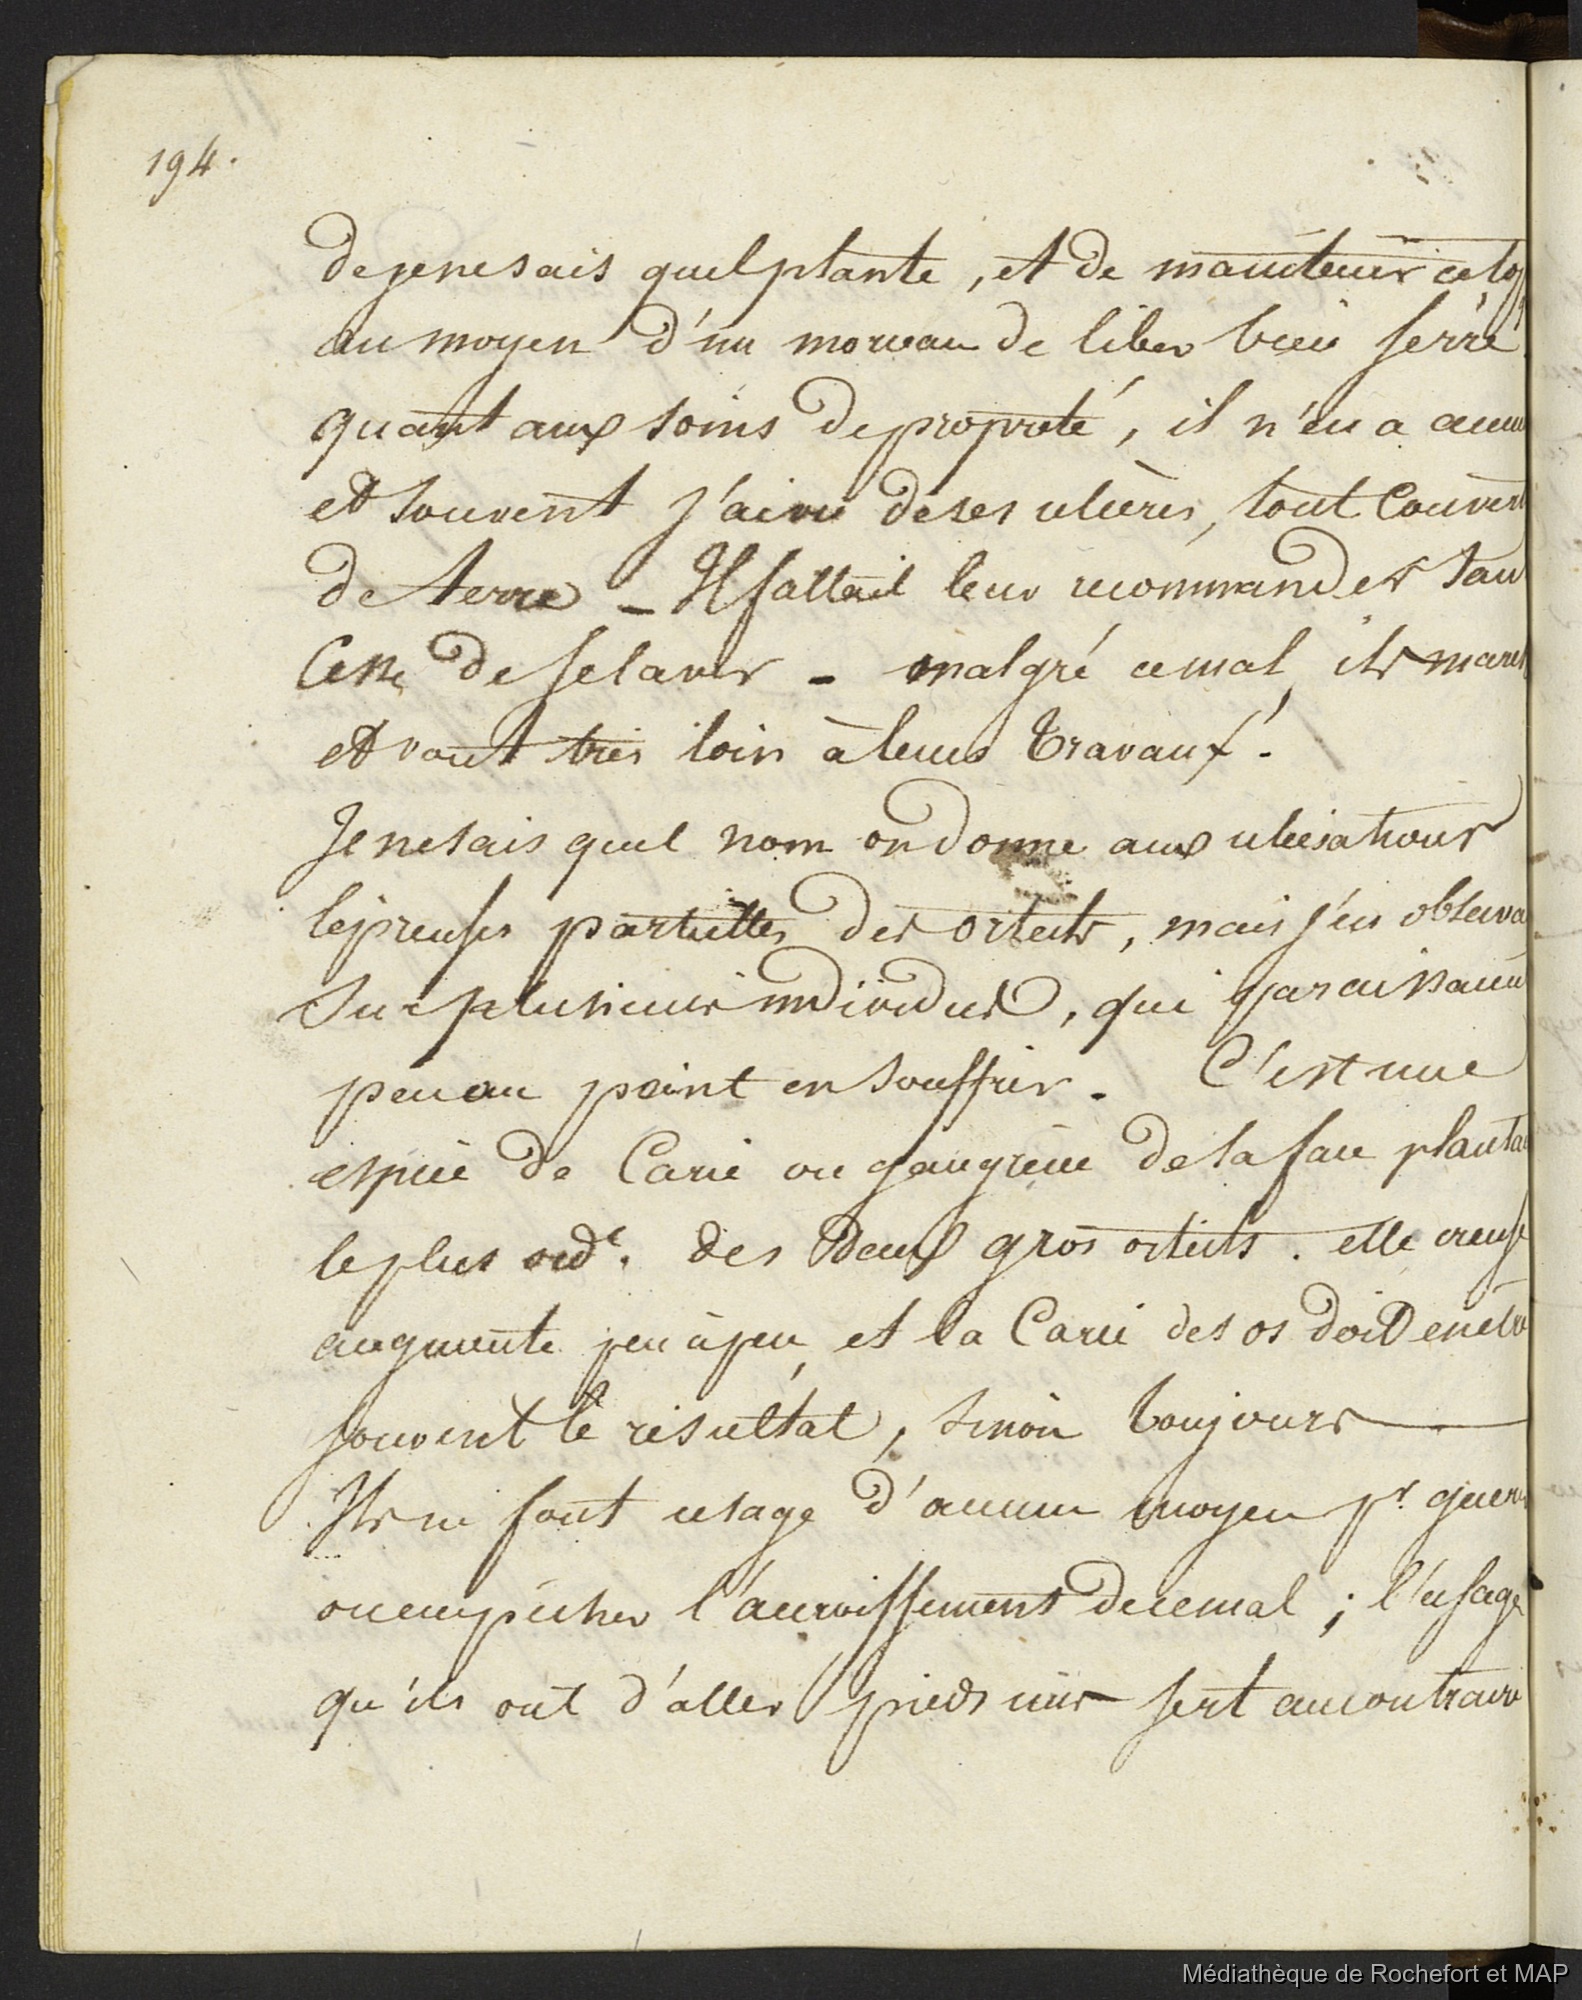 194.
de je ne sais quel plante, et de maintenir ce to
au moyen d'un morceau de liber bien serré
quant aux soins de propreté, il n'en a aucu
et souvent j'ai vu de ses ulcères, tout couvert
de terre _ Il fallait leur recommander san
Cesse de se laver - malgré ce mal, ils march
et vont très loin à leurs travaux.
Je ne sais quel nom on donne aux ulcérations
lépreuses partielles des orteils, mais j'en observa
sur plusieurs individus, qui paraissaien
peu ou point en souffrir. C'est une
espèce de Carie ou gangrène de la face planta
le plus ord.e des deux gros orteils. elle creuse
augmente peu à peu, et la Carie des os doit en être
souvent le résultat, sinon toujours
Ils ne font usage d'aucun moyen pr. guerir
ou empêcher l'accroissement de ce mal ; l'usage
qu'ils ont d'aller pieds nus sert au contraire
Médiathèque de Rochefort et MAP